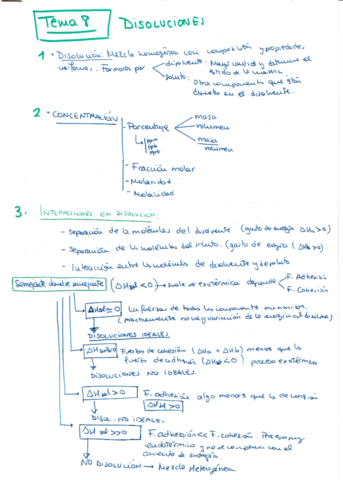 Tema 8 DISOLUCIONES
1. Disolución: Mezcla homogénea con composición y propiedades
uniformes. Formada por disolvente: Mayor cantidad y determina el
estado de la materia.
soluto: Otro componente que está
disuelto en el disolvente.
2 - CONCENTRACIÓN
- Porcentaje
masa
volumen
masa
volumen
ppm
ppb
ppt
- Fracción molar
- Molaridad
- Molalidad
3. INTERACCIONES EN DISOLUCIÓN:
- Separación de las moléculas del disolvente (gasto de energía ΔHa>0)
- Separación de las moléculas del soluto. (gasto de energía (ΔHb>0)
- Interacción entre las moléculas de disolvente y de soluto
Semejante disuelve semejante (ΔHc<0) → suele ser exotérmica depende
F. Adhesión
F. Cohesión
ΔHsol=0 La fuerza de todos los componentes
DISOLUCIONES IDEALES
ΔHsol<0 Fuerzas de cohesión (ΔHa + ΔHb) menores que la
fuerza de adhesión (ΔHc<0) proceso exotérmico
DISOLUCIONES NO IDEALES.
ΔHsol>0 F. adhesión algo menores que la de cohesión
ΔHsol>0
DISOL. NO IDEALES.
ΔHsol>>0 F. adhesión << F. cohesión. Proceso muy
endotérmico y no se compensa con el
aumento de entropía.
NO DISOLUCIÓN → Mezcla Heterogénea